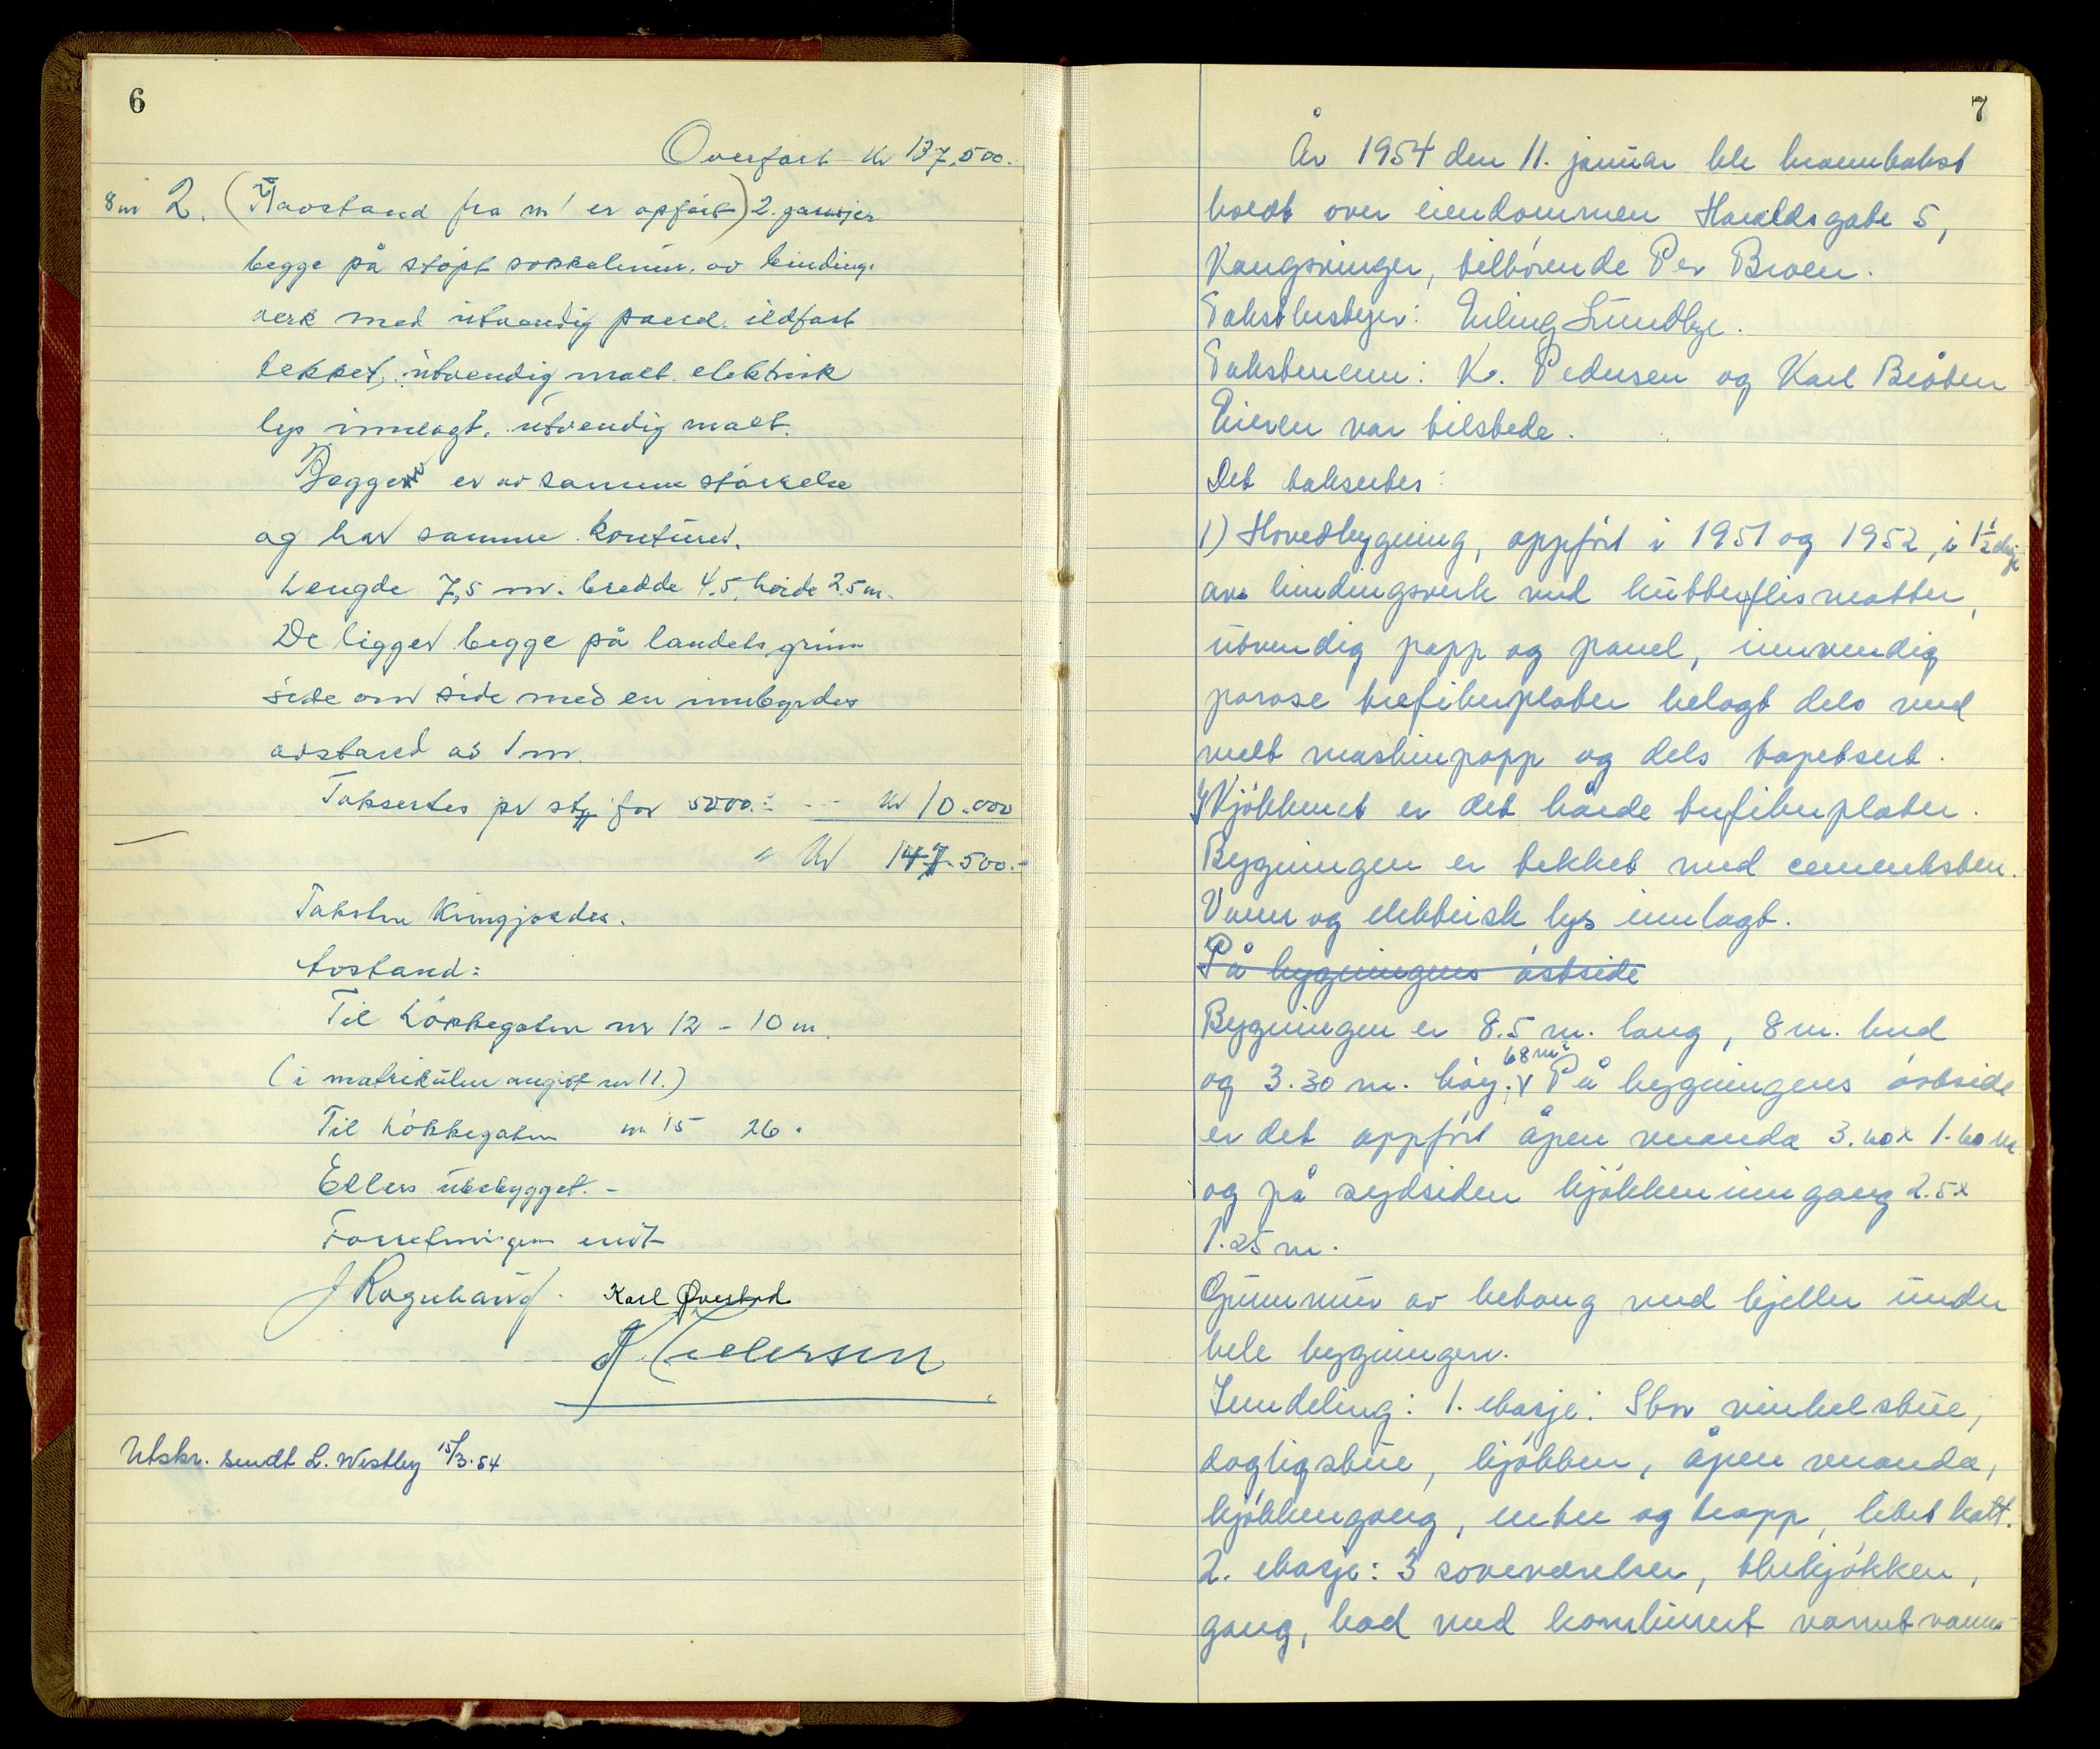 6
Overført kr 137.500.-
8 m 2. (I avstand fra nr 1 er opført) 2. garasjer
begge på støpt sokkelmur. av bindings
verk med utvendig panel. ildfast
tekket, utvendig malt. elektrisk
lys innlagt. utvendig malt.
Begge er av samme størrelse
og har samme konturer.
Lengde 7,5 m. bredde 4.5, høide 2.5 m.
De ligger begge på landets grunn
side om side med en innbyrdes
avstand av 1 m.
Taksertes pr stk for 5000.- -- kr 10.000
" kr 147.500.-
Taksten kunngjordes.
Avstand:
Til Løkkegaten nr 12 - 10 m
(i matrikulen angitt nr 11.)
Til Løkkegaten nr 15 26 "
Ellers ubebygget. -
Forretningen endt
J Rognhaug. Karl Øverbod
K Pedersen
Utskr. sendt L. Westby 15/3.54
7
År 1954 den 11. januar ble branntakst
holdt over eiendommen Haraldsgate 5,
Kongsvinger, tilhørende Per Broen.
Takstbestyrer: Erling Lundbye.
Takstmenn: K. Pedersen og Karl Bråten
Eieren var tilstede.
Det taksertes:
1) Hovedbygning, oppført i 1951 og 1952, i 1½ etg
av bindingsverk med kubbeflismatter,
utvendig papp og panel, innvendig
porøse trefiberplater belagt dels med
malt maskinpapp og dels tapetsert.
I kjøkkenet er det hårde trefiberplater.
Bygningen er tekket med cementsten.
Vann og elektrisk lys innlagt.
På bygningens østside
Bygningen er 8.5 m. lang, 8 m. bred
68 m²
og 3.30 m. høy. På bygningens østside
er det oppført åpen veranda 3.60 x 1.60 m
og på sydsiden kjøkkeninngang 2.5 x
1.25 m.
Grunnmur av betong med kjeller under
hele bygningen.
Inndeling: 1. etasje: Stor vinkelstue,
dagligstue, kjøkken, åpen veranda,
kjøkkengang, entre og trapp, lites kott.
2. etasje: 3 soveværelser, tekjøkken,
gang, bad med kombinert varmtvanns-